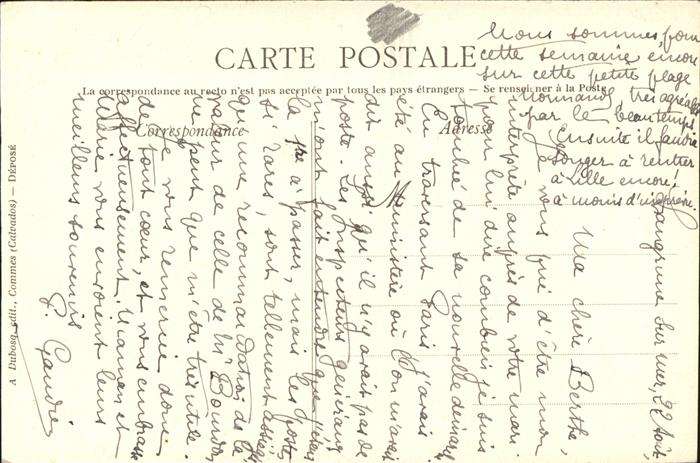 CARTE POSTALE
La correspondance au recto n'est pas acceptée par tous les pays étrangers — Se renseigner à la Poste
Correspondance
Adresse
A Dubosq, édit., Commes (Calvados) — DÉPOSÉ
sur mer, 22 août
Ma chère Berthe,
Je vous prie d'être mon
interprète auprès de votre mari
pour lui dire combien je suis
touchée de sa nouvelle démarche
En traversant Paris j'avais
été au Ministère où l'on m'avait
dit aussi qu'il n'y avait pas de
poste. Les Inspecteurs généraux
m'ont fait entendre que
la 1re à passer, mais les postes
si rares, sont tellement
qu'une recommandation de la
valeur de celle de M. Bourdon
ne peut que m'être très utile.
Je vous remercie donc
de tout cœur, et vous embrasse
affectueusement. Maman et
vous envoient leurs
meilleurs souvenirs
G.
Nous sommes pour
cette semaine encore
sur cette petite plage
normande, très agréable
par le beau temps
Ensuite il faudra
songer à rentrer
à Lille encore!
à moins d'imprévu.